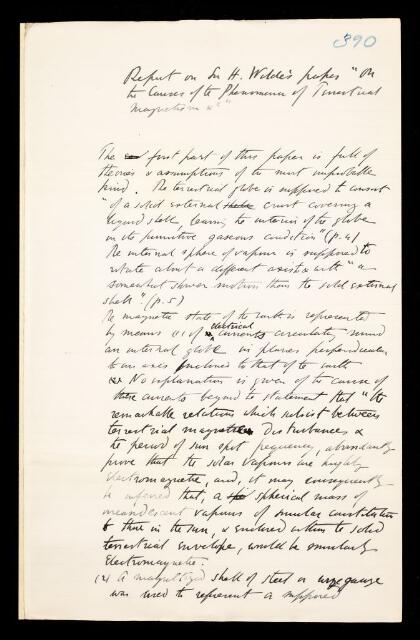 390
Report on Mr H. Wilde's paper "On
the Causes of the Phenomena of Terrestrial
Magnetism &c"
The first part of this paper is full of
theories & assumptions of the most improbable
kind. The terrestrial globe is supposed to consist
"of a solid external crust covering a
liquid shell, leaving the interior of the globe
in its primitive gaseous condition" (p. 4)
The internal sphere of vapour is supposed to
rotate about a different axis & with "a
somewhat slower motion than the solid external
shell" (p. 5)
The magnetic state of the earth is represented
by means (1) of electrical currents circulating round
an internal globe in planes perpendicular
to an axis inclined to that of the earth
No explanation is given of the cause of
these currents beyond the statement that "the
remarkable relations which subsist between
terrestrial magnetic Disturbances &
the period of sun spot frequency, abundantly
prove that the solar vapours are highly
electromagnetic, and, it may consequently
be inferred that, a spherical mass of
incandescent vapours of similar constitution
to those in the sun, & enclosed within the solid
terrestrial envelope, would be similarly
Electromagnetic.
(2) A magnetized shell of steel or wire gauze
was used to represent a supposed